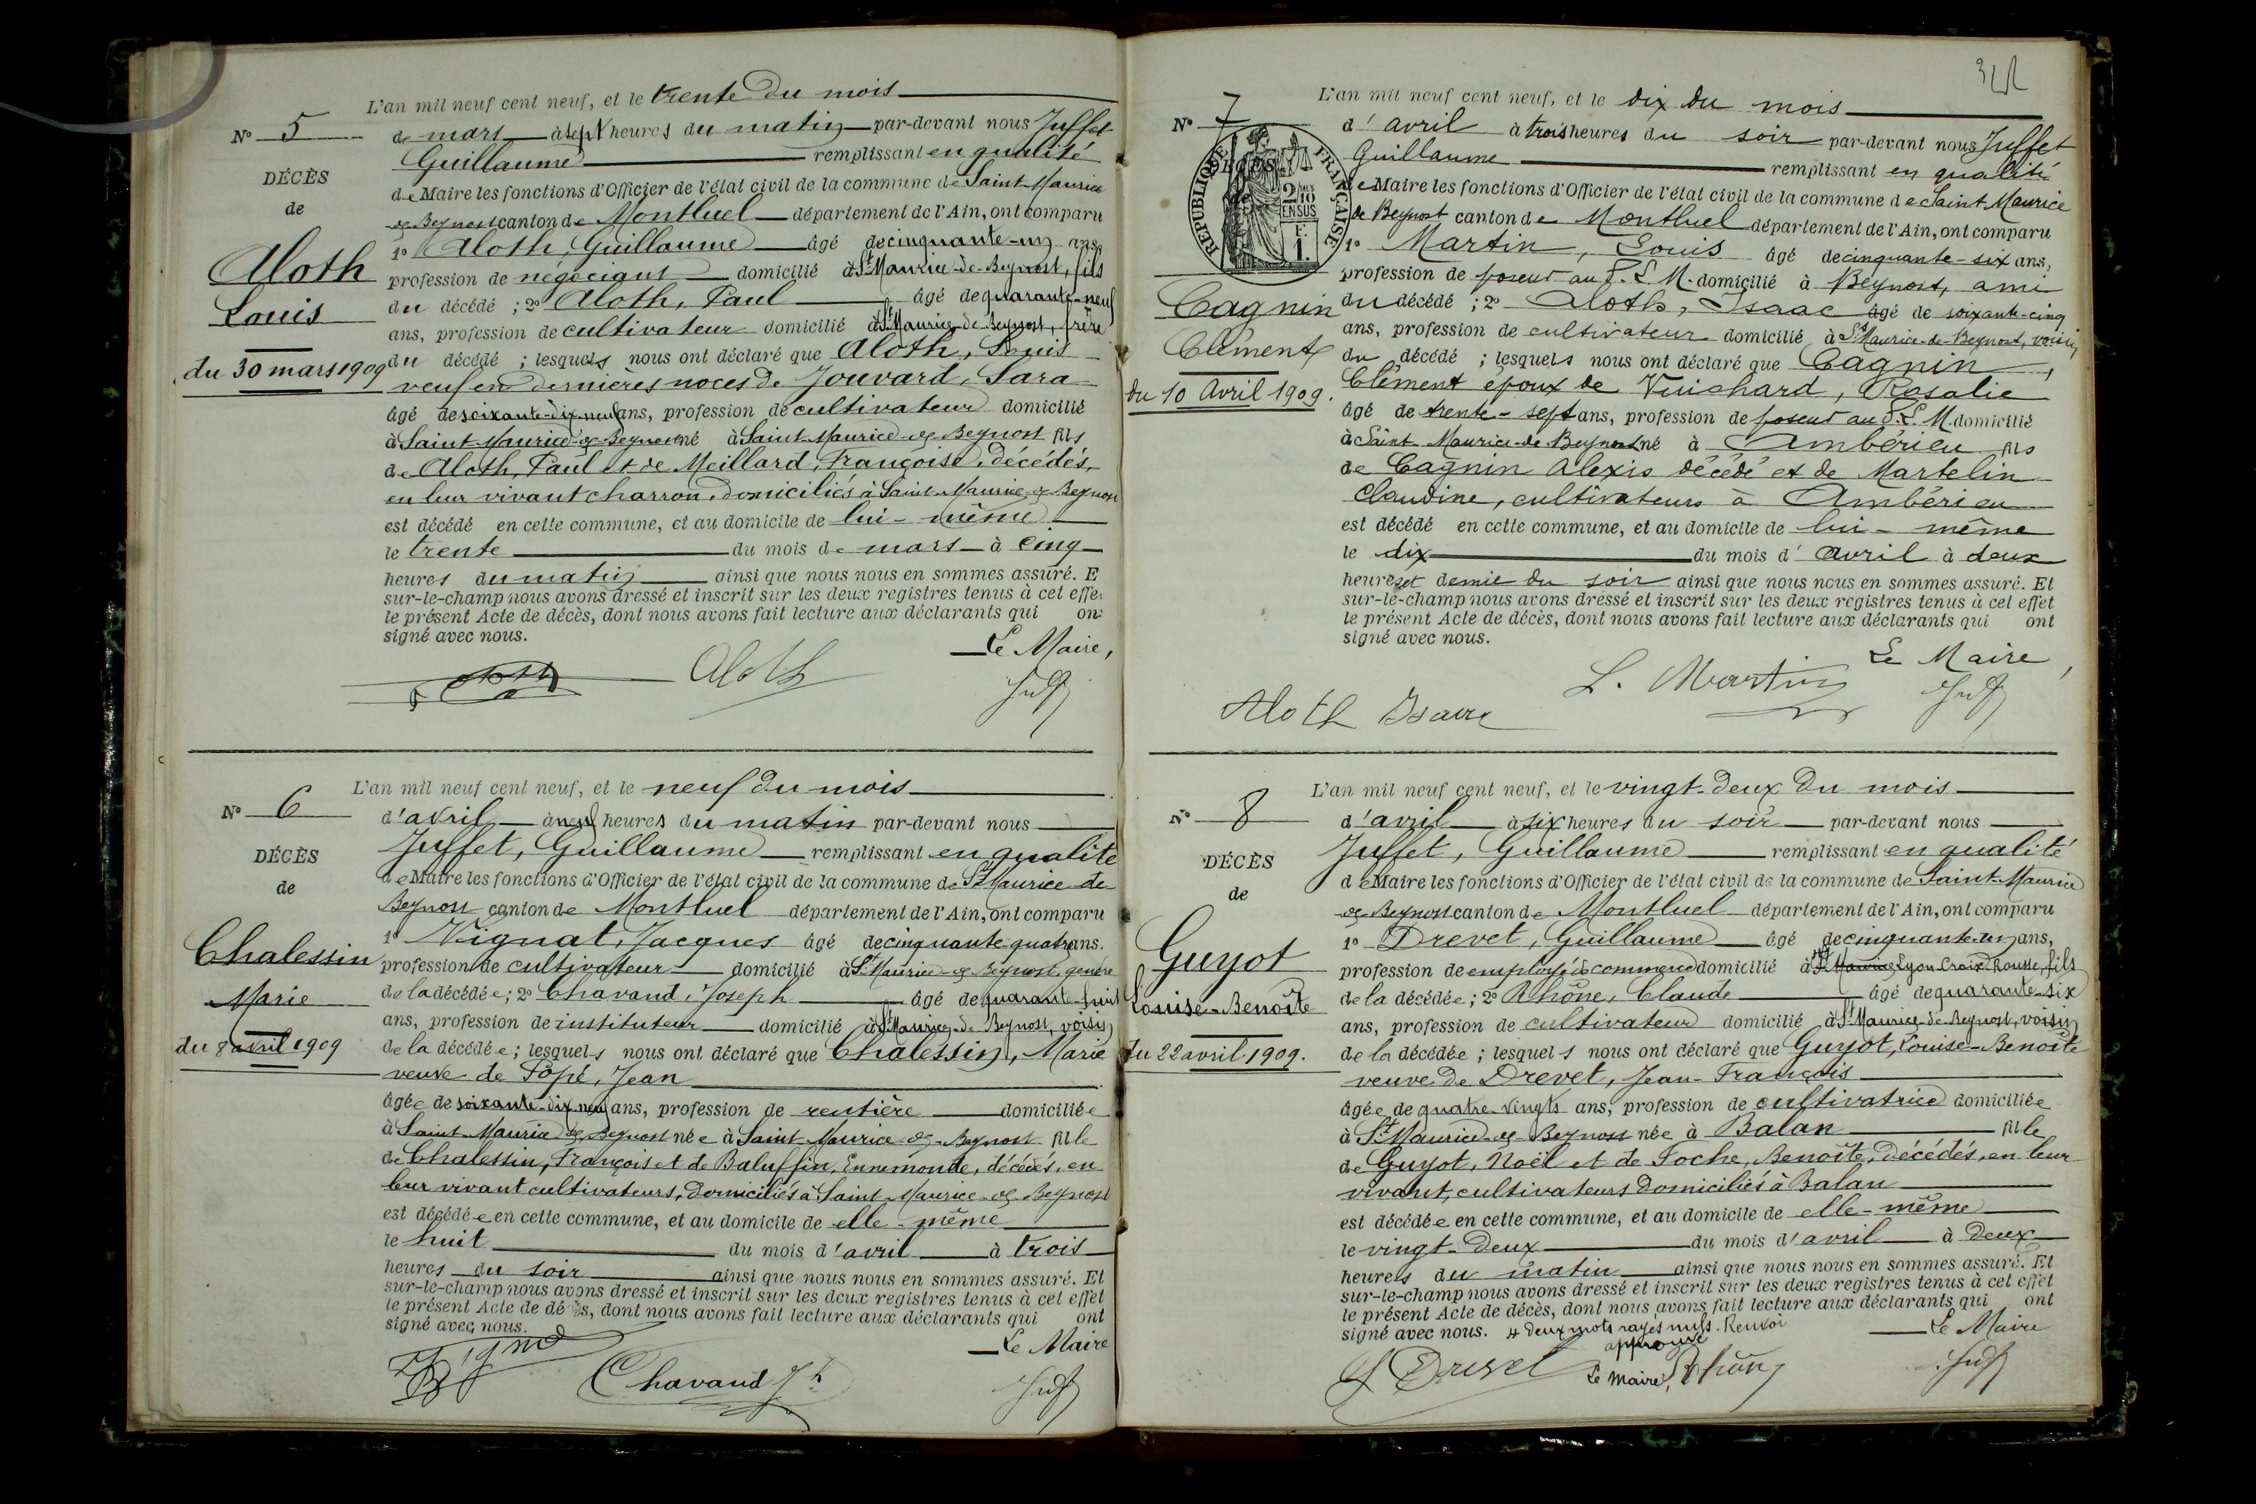 L'an mil neuf cent neuf, et le trente du mois
N° 5
de mars à sept heures du matin par-devant nous Juffet
Guillaume remplissant en qualité
DÉCÈS
de Maire les fonctions d'Officier de l'état civil de la commune de Saint-Maurice
de
de Beynost canton de Montluel département de l'Ain, ont comparu
1° Aloth, Guillaume âgé de cinquante-un ans
Aloth
profession de négociant domicilié à St Maurice-de-Beynost, fils
Louis
du décédé ; 2° Aloth, Paul âgé de quarante-neuf
ans, profession de cultivateur domicilié à St Maurice-de-Beynost, frère
du 30 mars 1909
du décédé ; lesquels nous ont déclaré que Aloth, Louis
veuf en dernières noces de Jouvard, Sara
âgé de soixante-dix-neuf ans, profession de cultivateur domicilié
à Saint-Maurice-de-Beynost né à Saint-Maurice-de-Beynost fils
de Aloth, Paul et de Meillard, Françoise, décédés,
en leur vivant charron, domiciliés à Saint-Maurice-de-Beynost
est décédé en cette commune, et au domicile de lui-même
le trente du mois de mars à cinq
heures du matin ainsi que nous nous en sommes assuré. E
sur-le-champ nous avons dressé et inscrit sur les deux registres tenus à cet effe
le présent Acte de décès, dont nous avons fait lecture aux déclarants qui on
signé avec nous.
Le Maire,
Aloth
Juff
L'an mil neuf cent neuf, et le neuf du mois
N° 6
d'avril à neuf heures du matin par-devant nous
Juffet, Guillaume remplissant en qualité
DÉCÈS
de Maire les fonctions d'Officier de l'état civil de la commune de St Maurice de
de
Beynost canton de Montluel département de l'Ain, ont comparu
1° Vignat, Jacques âgé de cinquante-quatre ans.
Chalessin
profession de cultivateur domicilié à St Maurice-de-Beynost, gendre
Marie
de la décédée ; 2° Chavand, Joseph âgé de quarante-huit
ans, profession de instituteur domicilié à St Maurice-de-Beynost, voisin
du 8 avril 1909
de la décédée ; lesquels nous ont déclaré que Chalessin, Marie
veuve de Popé, Jean
âgée de soixante-dix neuf ans, profession de rentière domiciliée
à Saint-Maurice de Beynost née à Saint-Maurice-de-Beynost fille
de Chalessin, François et de Baluffin, Ennemonde, décédés, en
leur vivant cultivateurs, domiciliés à Saint-Maurice-de-Beynost
est décédée en cette commune, et au domicile de elle-même
le huit du mois d'avril à trois
heures du soir ainsi que nous nous en sommes assuré. Et
sur-le-champ nous avons dressé et inscrit sur les deux registres tenus à cet effet
le présent Acte de décès, dont nous avons fait lecture aux déclarants qui ont
signé avec nous.
Le Maire
Chavand Jh
Juff
L'an mil neuf cent neuf, et le dix du mois
N° 7
d'avril à trois heures du soir par-devant nous Juffet
Guillaume remplissant en qualité
DÉCÈS
RÉPUBLIQUE FRANÇAISE
2/10 EN SUS
F. 1.
de Maire les fonctions d'Officier de l'état civil de la commune de Saint Maurice
de Beynost canton de Montluel département de l'Ain, ont comparu
1° Martin, Louis âgé de cinquante-six ans,
profession de poseur au P. L. M. domicilié à Beynost, ami
Cagnin
du décédé ; 2° Aloth, Isaac âgé de soixante-cinq
Clément
ans, profession de cultivateur domicilié à St Maurice-de-Beynost, voisin
du décédé ; lesquels nous ont déclaré que Cagnin,
du 10 Avril 1909.
Clément époux de Vuichard, Rosalie
âgé de trente-sept ans, profession de poseur au P. L. M. domicilié
à Saint Maurice-de-Beynost né à Ambérieu fils
de Cagnin Alexis décédé et de Martelin
Claudine, cultivateurs à Ambérieu
est décédé en cette commune, et au domicile de lui-même
le dix du mois d'avril à deux
heures et demie du soir ainsi que nous nous en sommes assuré. Et
sur-le-champ nous avons dressé et inscrit sur les deux registres tenus à cet effet
le présent Acte de décès, dont nous avons fait lecture aux déclarants qui ont
signé avec nous.
Le Maire,
L. Martin
Juff
Aloth Isaac
L'an mil neuf cent neuf, et le vingt-deux du mois
N° 8
d'avril à six heures du soir par-devant nous
Juffet, Guillaume remplissant en qualité
DÉCÈS
de Maire les fonctions d'Officier de l'état civil de la commune de Saint-Maurice
de
de Beynost canton de Montluel département de l'Ain, ont comparu
1° Drevet, Guillaume âgé de cinquante-un ans,
Guyot
profession de employé de commerce domicilié à St Maurice Lyon Croix Rousse, fils
Louise-Benoîte
de la décédée ; 2° Rhône, Claude âgé de quarante-six
ans, profession de cultivateur domicilié à St Maurice-de-Beynost, voisin
du 22 avril 1909.
de la décédée ; lesquels nous ont déclaré que Guyot, Louise-Benoîte
veuve de Drevet, Jean-François
âgée de quatre-vingts ans, profession de cultivatrice domiciliée
à St Maurice-de-Beynost née à Balan fille
de Guyot, Noël et de Foche, Benoîte, décédés, en leur
vivant, cultivateurs domiciliés à Balan
est décédée en cette commune, et au domicile de elle-même
le vingt-deux du mois d'avril à deux
heures du matin ainsi que nous nous en sommes assuré. Et
sur-le-champ nous avons dressé et inscrit sur les deux registres tenus à cet effet
le présent Acte de décès, dont nous avons fait lecture aux déclarants qui ont
signé avec nous. # deux mots rayés nuls. Renvoi
approuvé
Le Maire
Drevet
Le Maire, Rhône
Juff